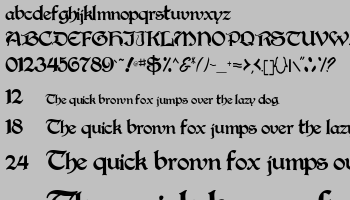 abcdefghijklmnopqrstuvwxyz
ABCDEFGHIJKLMNOPQRSTUVW
0123456789
12 The quick brown fox jumps over the lazy dog.
18 The quick brown fox jumps over the lazy
24 The quick brown fox jumps ov